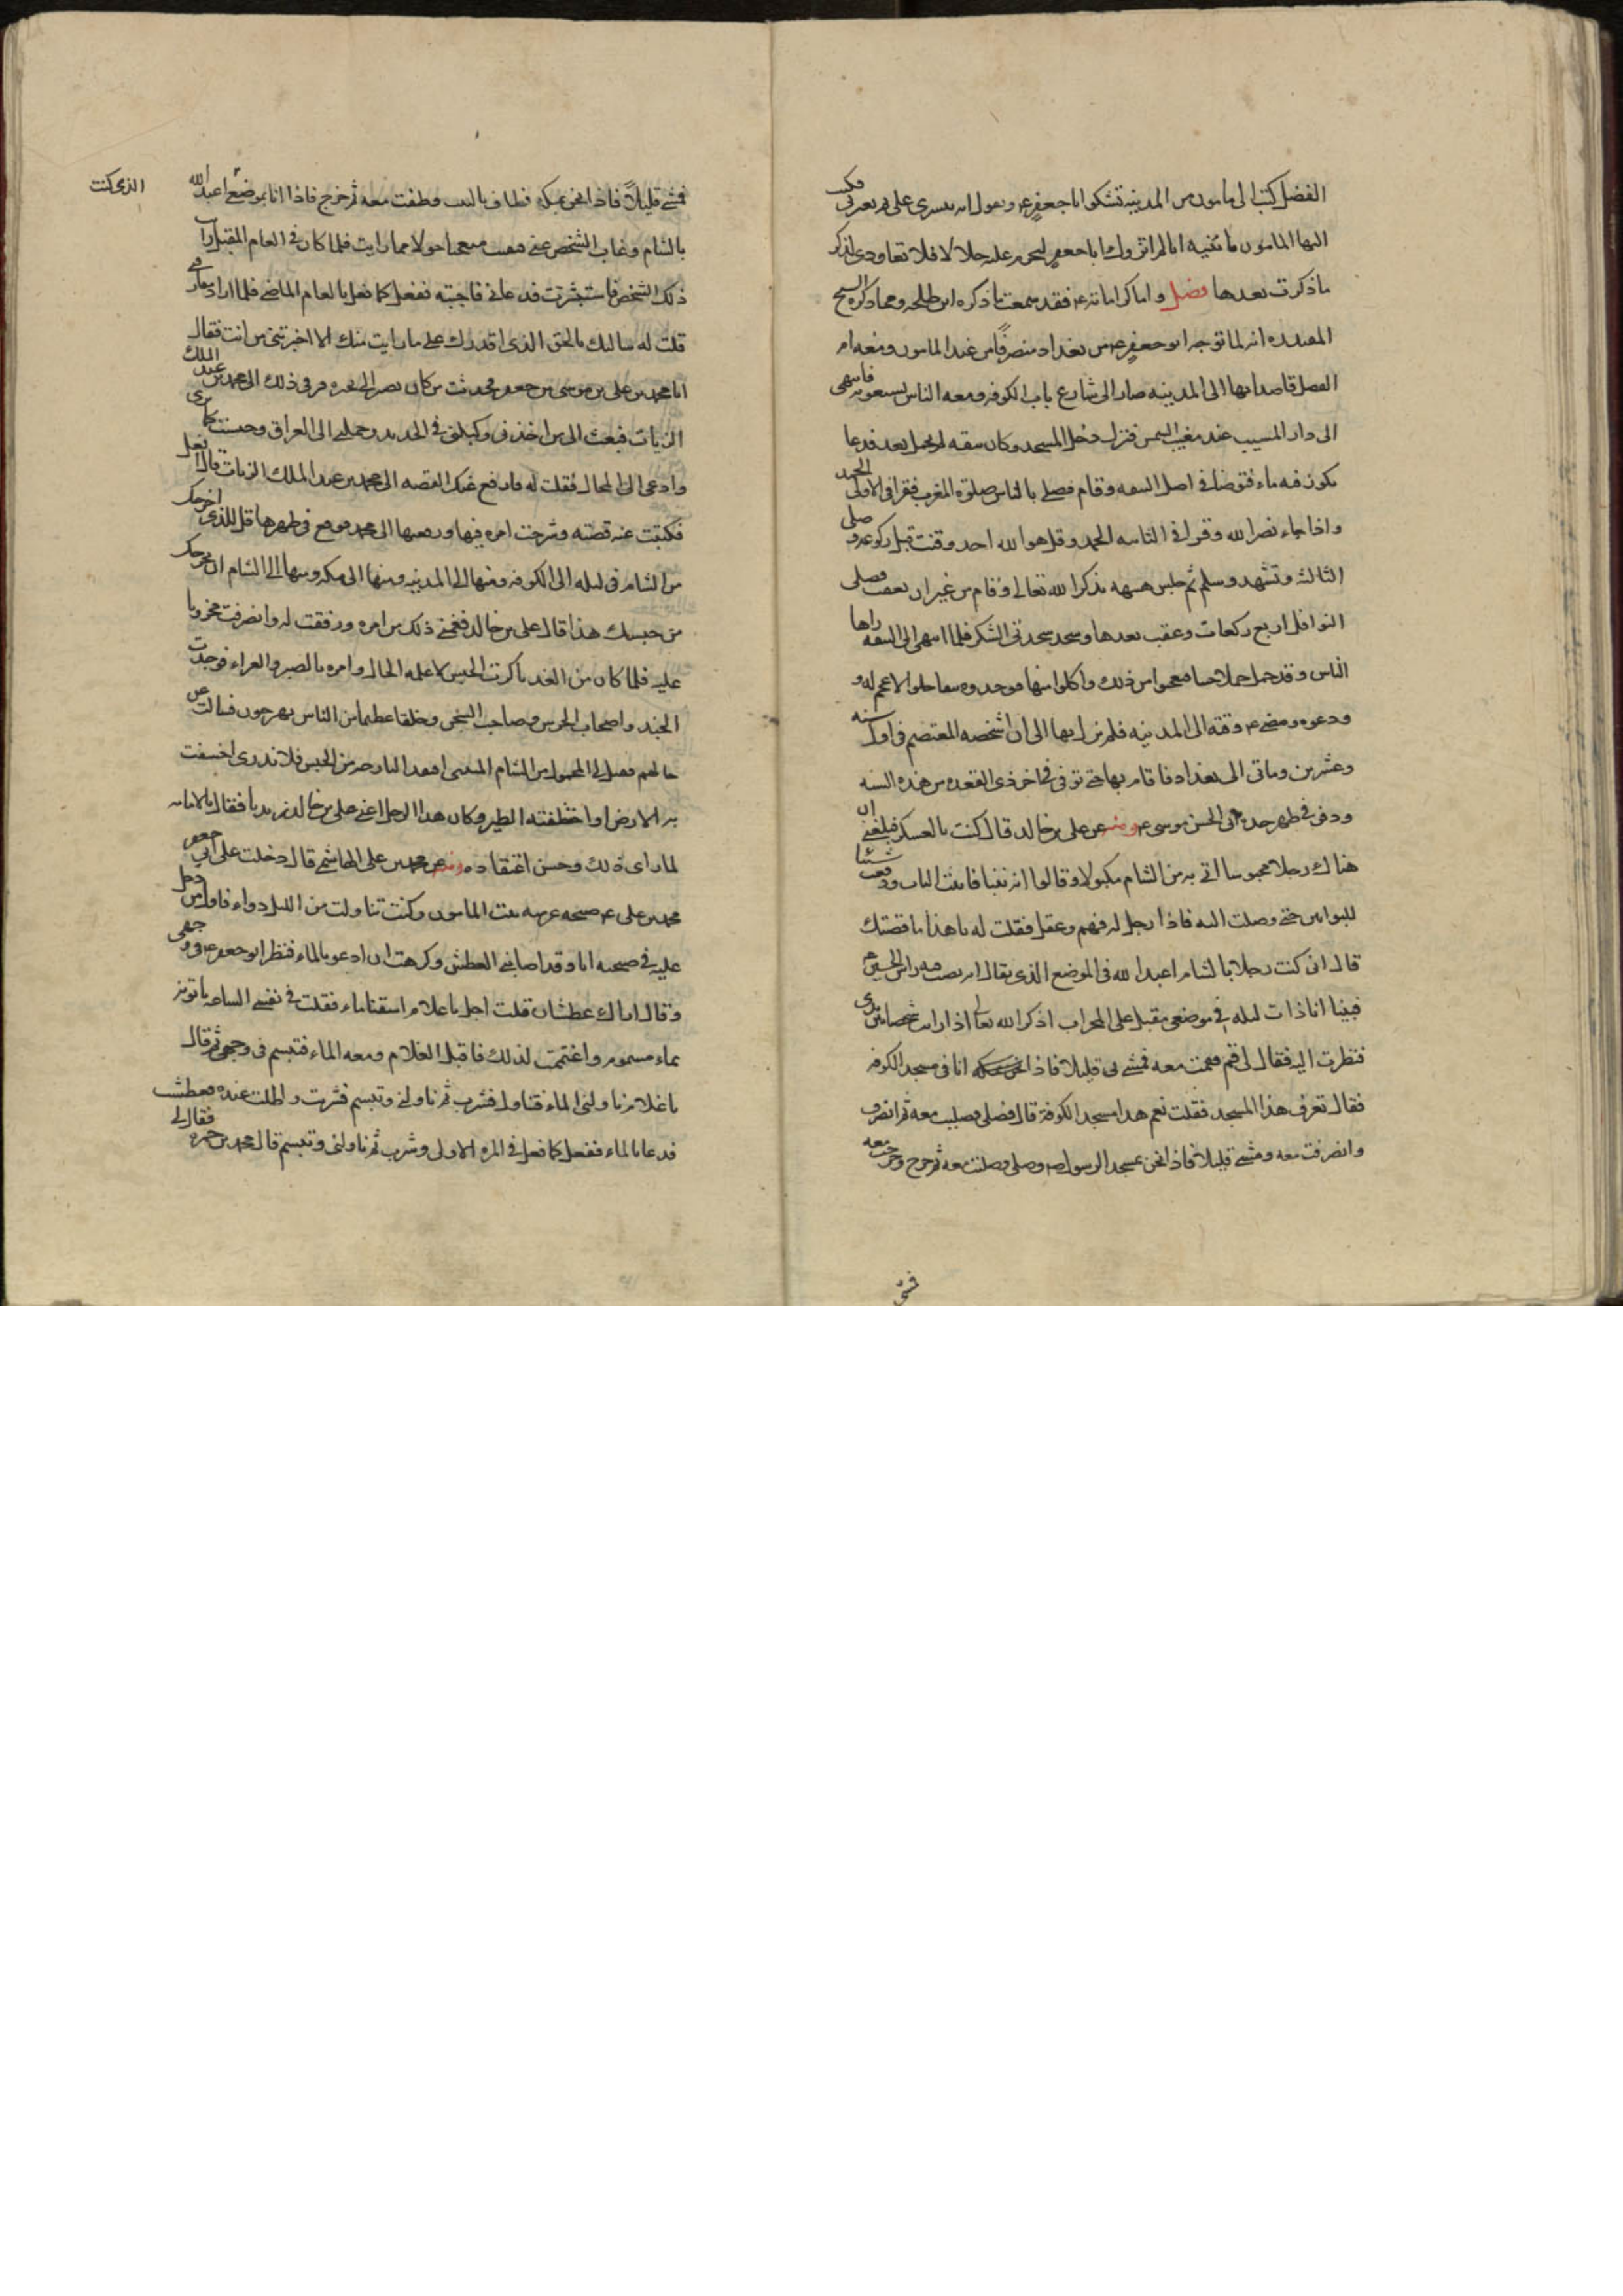 الفضل كتبت الى مامون من المدينة تشكوا ابا جعفر ع وتقول انه يتسرى على ويغيرنى فكتب
اليها المامون يا بنيه انا لم ازوجك ابا جعفر ليحرم عليه حلالا فلا تعاودى لذكر
ما ذكرت بعدها فصل واما كراماته ع فقد سمعت ما ذكره ابن طلحه ومما ذكره الشيخ
المفيد ره انه لما توجه ابو جعفر ع من بغداد منصرفًا من عند المامون ومعه ام
الفضل قاصدا بها الى المدينه صار الى شارع باب الكوفه ومعه الناس يشيعونه فانتهى
الى دار المسيب عند مغيب الشمس فنزل ودخل المسجد وكان نبقه لم يحمل بعد فدعا
بكوز فيه ماء فتوضا فى اصل النبقه وقام فصلى بالناس صلوة المغرب فقرا فى الاولى الحمد
واذا جاء نصر الله وقرا فى الثانيه الحمد وقل هو الله احد وقنت قبل ركوعه وصلى
الثالثه وتشهد وسلم ثم جلس هنيهه يذكر الله تعالى وقام من غير ان يعقب فصلى
النوافل اربع ركعات وعقب بعدها وسجد سجدتى الشكر فلما انتهى الى النبقه راها
الناس وقد حمل حملا حسنا فعجبوا من ذلك واكلوا منها فوجدوه نبقا حلوا لا عجم له و
ودعوه ومضى ع من وقته الى المدينه فلم يزل بها الى ان اشخصه المعتصم فى اول سنه
وعشرين وماتى الى بغداد فاقام بها حتى توفى فى اخر ذى القعده من هذه السنه
ودفن فى ظهر جده ابى الحسن موسى ع ومنه عن على بن خالد قال كنت بالعسكر فبلغنى ان
هناك رجلا محبوسا اتى به من الشام مكبولا وقالوا انه تنبا فاتيت الباب ودفعت شيئا
للبوابين حتى وصلت اليه فاذا رجل له فهم وعقل فقلت له يا هذا ما قصتك
قال انى كنت رجلا بالشام اعبد الله فى الموضع الذى يقال انه نصب فيه راس الحسين ع
فبينا انا ذات ليله فى موضعى مقبل على المحراب اذكر الله تعالى اذ رايت شخصا بين يدى
فنظرت اليه فقال لى قم فقمت معه فمشى بى قليلا فاذا انا فى مسجد الكوفه
فقال تعرف هذا المسجد فقلت نعم هذا مسجد الكوفة قال فصلى وصليت معه ثم انصرف
وانصرفت معه ومشى قليلا فاذا نحن بمسجد الرسول ص وصلى وصليت معه ثم خرج وخرجت معه
فمشى
فمشى قليلاً فاذا نحن بمكه فطاف بالبيت وطفت معه ثم خرج فاذا انا بموضعى اعبد الله
الذى كنت
بالشام وغاب الشخص عنى فبقيت متعجبا حولا مما رايت فلما كان فى العام المقبل رايت
ذلك الشخص فاستبشرت فدعانى فاجبته ففعل كما فعل بالعام الماضى فلما اراد مفارقتى
قلت له سالتك بالحق الذى اقدرك على ما رايت منك الا اخبرتنى من انت فقال
انا محمد بن على بن موسى بن جعفر فحدثت من كان يصير الى بخبره فرقى ذلك الى محمد بن عبد الملك
الزيات فبعث الى من اخذنى وكبلنى فى الحديد وحملنى الى العراق وحبست كما ترى
وادعى الى المحال فقلت له فارفع عنك القصه الى محمد بن عبد الملك الزيات قال افعل
فكتبت عنه قصته وشرحت امره فيها ورفعتها الى محمد فوقع فى ظهرها قل للذى اخرجك
من الشام فى ليله الى الكوفه ومنها الى المدينه ومنها الى مكه ومنها الى الشام ان يخرجك
من حبسك هذا قال على بن خالد فغمنى ذلك من امره ورققت له وانصرفت محزونا
عليه فلما كان من الغد باكرت الحبس لاعلمه الحال وامره بالصبر والعزاء فوجدت
الجند واصحاب الحرس وصاحب السجن وخلقا عظيما من الناس يهرجون فسالت عن
حالهم فقيل لى المحمول من الشام المتنبى افتقد البارحه من الحبس فلا ندرى اخسفت
به الارض او اختطفته الطير وكان هذا الرجل اعنى على بن خالد زيديا فقال بالامامه
لما راى ذلك وحسن اعتقاده ومنه عن محمد بن على الهاشمى قال دخلت على ابى جعفر
محمد بن على ع صبيحه عرسه ببنت المامون وكنت تناولت من الليل دواء فاول من دخل
عليه فى صبيحته انا وقد اصابنى العطش وكرهت ان ادعو بالماء فنظر ابو جعفر ع فى وجهى
وقال اراك عطشان قلت اجل يا غلام اسقنا ماء فقلت فى نفسى الساعه ياتونه
بماء مسموم واغتممت لذلك فاقبل الغلام ومعه الماء فتبسم فى وجهى ثم قال
يا غلام ناولنى الماء فتناول فشرب ثم ناولنى وتبسم فشربت واطلت عنده فعطشت
فدعا بالماء ففعل كما فعل فى المره الاولى وشرب ثم ناولنى وتبسم قال محمد بن حمزه فقال لى